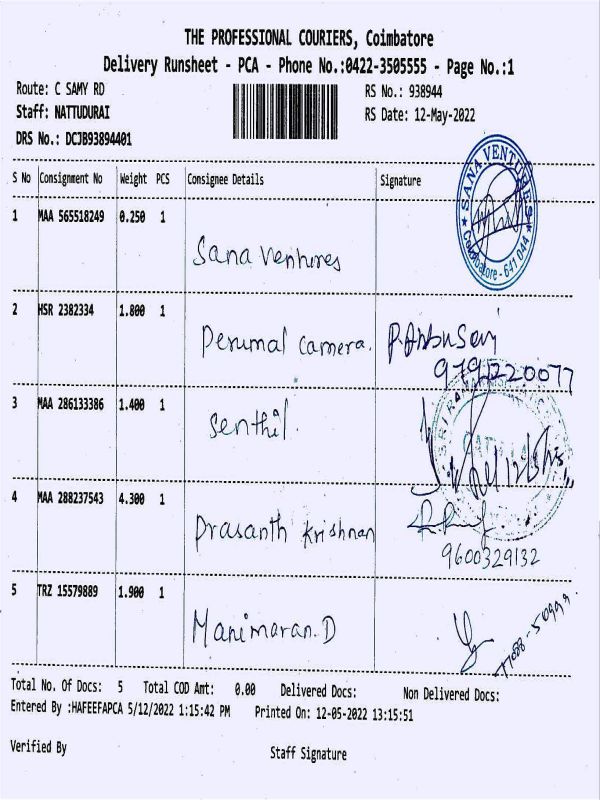 THE PROFESSIONAL COURIERS, Coimbatore
Delivery Runsheet - PCA - Phone No.:0422-3505555 - Page No.:1
Route: C SAMY RD RS No.: 938944
Staff: NATTUDURAI RS Date: 12-May-2022
DRS No.: DCJB93894401
S No Consignment No Weight PCS Consignee Details Signature
1 MAA 565518249 0.250 1
Sana Ventures
SANA VENTURES
Coimbatore - 641 044
2 HSR 2382334 1.800 1
Perumal camera.
9791220077
3 MAA 286133386 1.400 1
Senthil.
4 MAA 288237543 4.300 1
Prasanth Krishnan
9600329132
5 TRZ 15579889 1.900 1
Manimaran.D
Total No. Of Docs: 5 Total COD Amt: 0.00 Delivered Docs: Non Delivered Docs:
Entered By :HAFEEFAPCA 5/12/2022 1:15:42 PM Printed On: 12-05-2022 13:15:51
Verified By Staff Signature